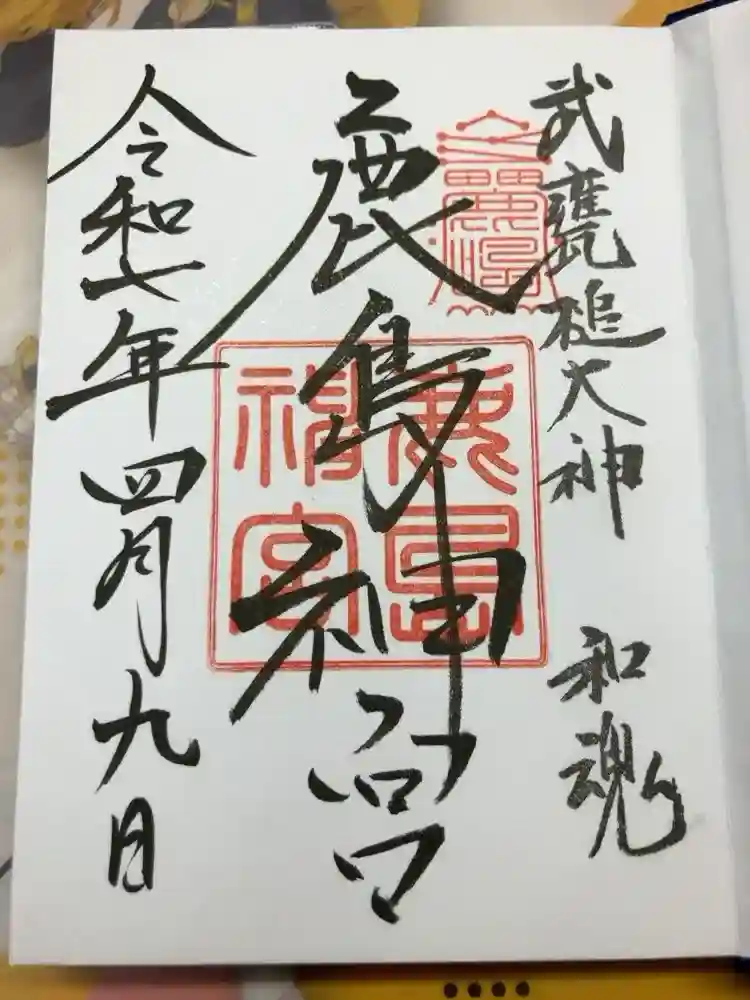 武甕槌大神 和魂
鹿島神宮
鹿島
神宮
令和七年四月九日